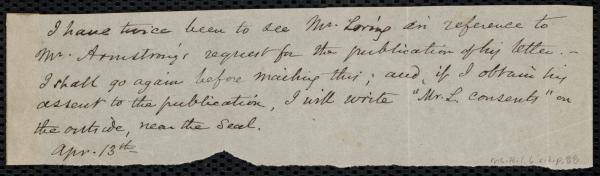 I have twice been to see Mr. Loring in reference to
Mr. Armstrong's request for the publication of his letter. –
I shall go again before mailing this; and, if I obtain his
assent to the publication, I will write "Mr. L. consents" on
the outside, near the Seal.
Apr. 13th